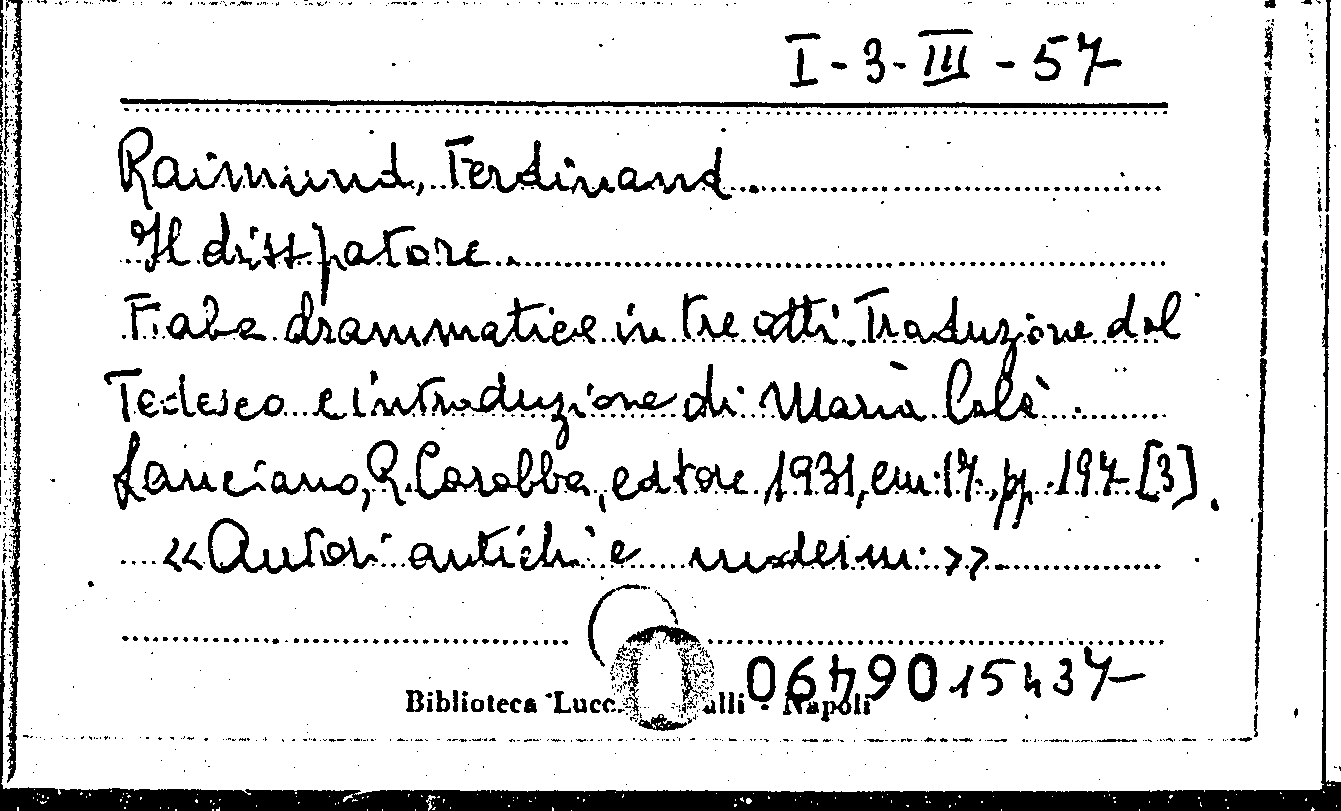 I-3-III-57
Raimund, Ferdinand.
Il dissipatore.
Fiaba drammatica in tre atti. Traduzione dal
Tedesco e introduzione di Maria
Lanciano, R. Carabba, editore 1931, cm. 17, pp. 197 [3].
«Autori antichi e moderni»
06490 15437
Biblioteca Napoli